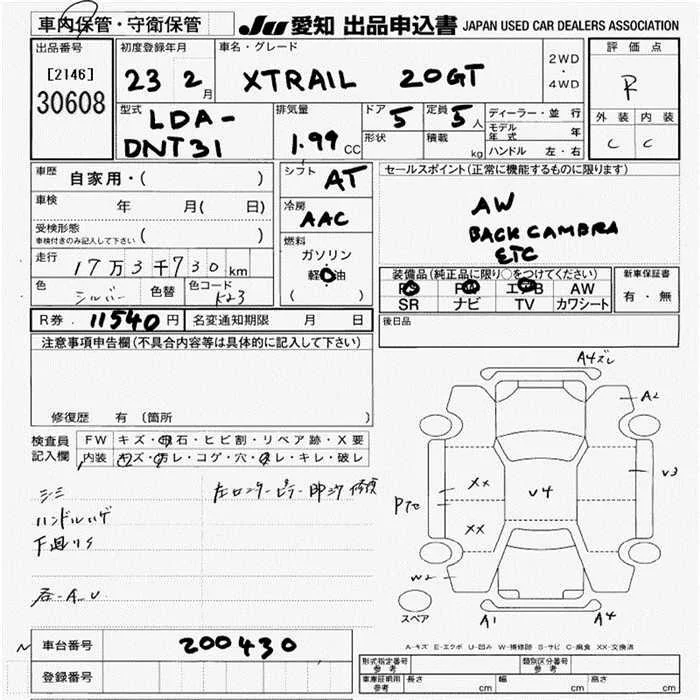 車内保管・守衛保管
JU 愛知 出品申込書 JAPAN USED CAR DEALERS ASSOCIATION
出品番号
[2146]
30608
初度登録年月
23 2月
車名・グレード
XTRAIL 20GT
2WD
・
4WD
評価点
R
外装 内装
C C
型式
LDA-
DNT31
排気量
1.99 CC
ドア 5
定員 5人
形状
積載 kg
ディーラー・並行
モデル年式 年
ハンドル 左・右
車歴 自家用・( )
車検 年 月( 日)
受検形態
車検付きのみ記入して下さい ( )
走行 17万3千730km
色 シルバー 色替 色コード K23
シフト AT
冷房
AAC
燃料
ガソリン
軽油
( )
セールスポイント(正常に機能するものに限ります)
AW
BACK CAMERA
ETC
装備品(純正品に限り○をつけてください)
PS PW エアB AW
SR ナビ TV カワシート
新車保証書
有・無
後日品
R券 11540円 名変通知期限 月 日
注意事項申告欄(不具合内容等は具体的に記入して下さい)
修復歴 有 (箇所 )
検査員
記入欄
FW キズ・飛石・ヒビ割・リペア跡・X要
内装 キズ・汚レ・コゲ・穴・スレ・キレ・破レ
シミ
ハンドルハゲ
下廻りS
左センターピラー
修復
A4ズレ
A2
V3
XX
XX
V4
W2
A1
A4
スペア
A-キズ E-エクボ U-凹み W-補修跡 S-サビ C-腐食 XX-交換済
車台番号 200430
登録番号
形式指定番号
参考
類別区分番号
参考
車庫証明用
参考
長さ cm 幅 cm 高さ cm